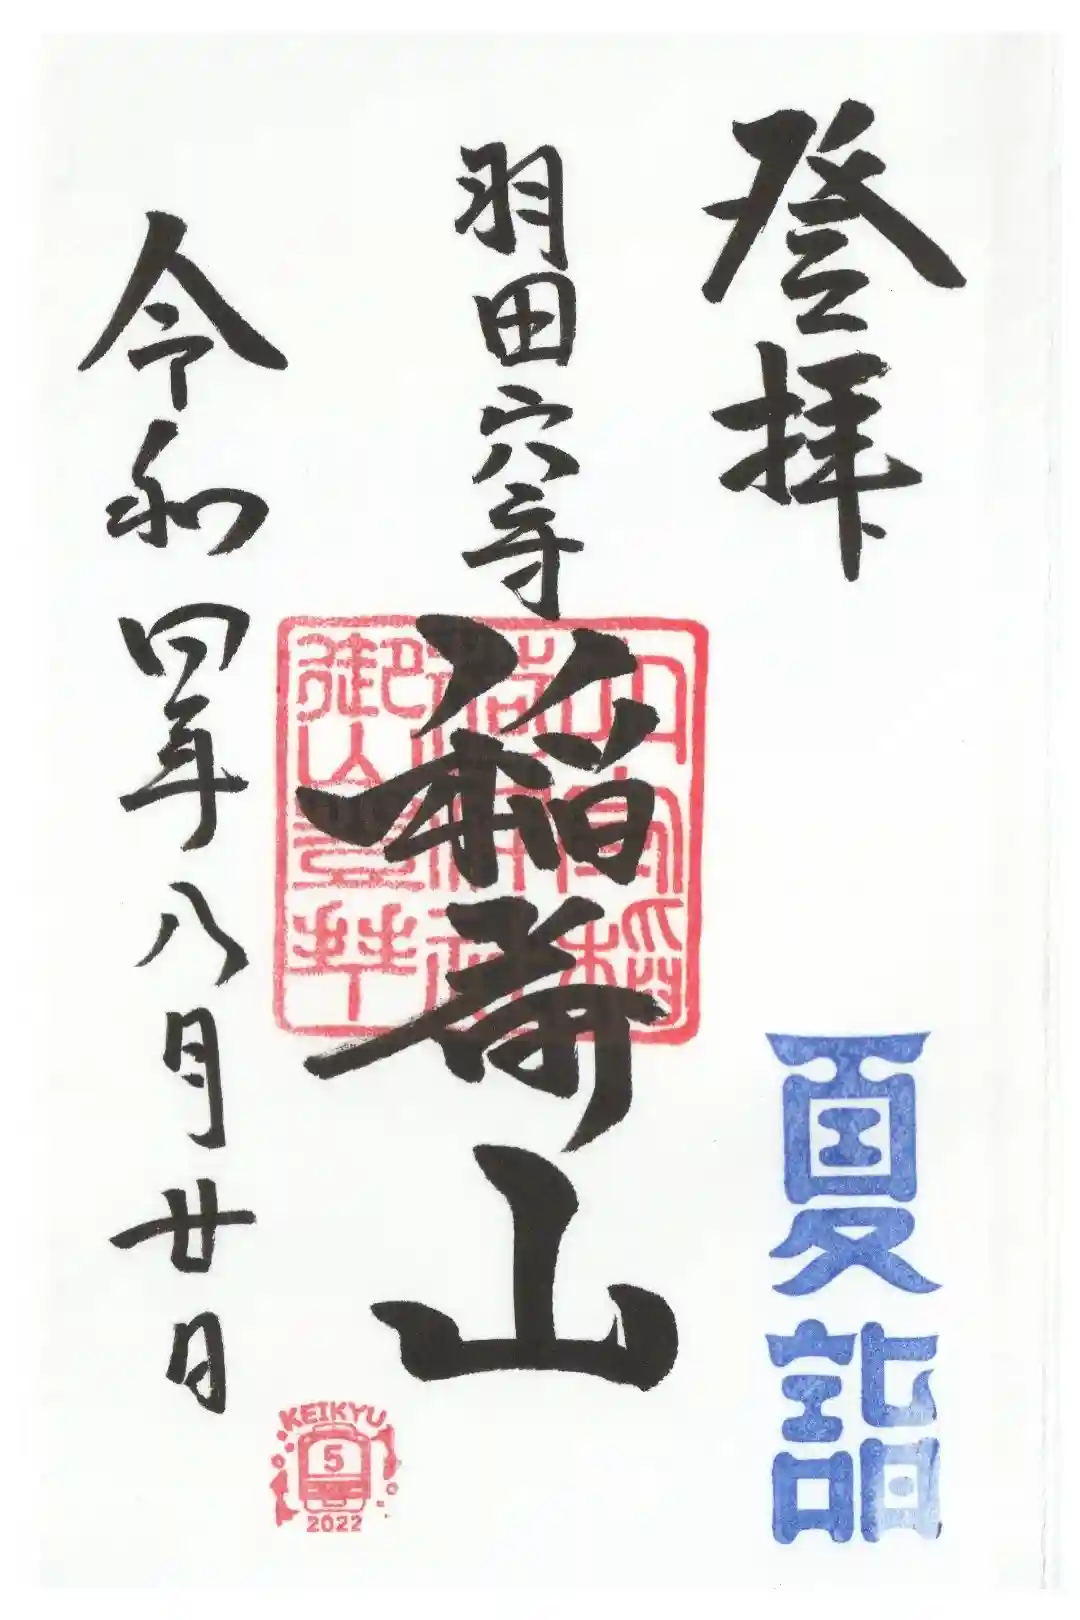 登拝
夏詣
羽田穴守
稲荷山
令和四年八月廿日
KEIKYU
5
2022